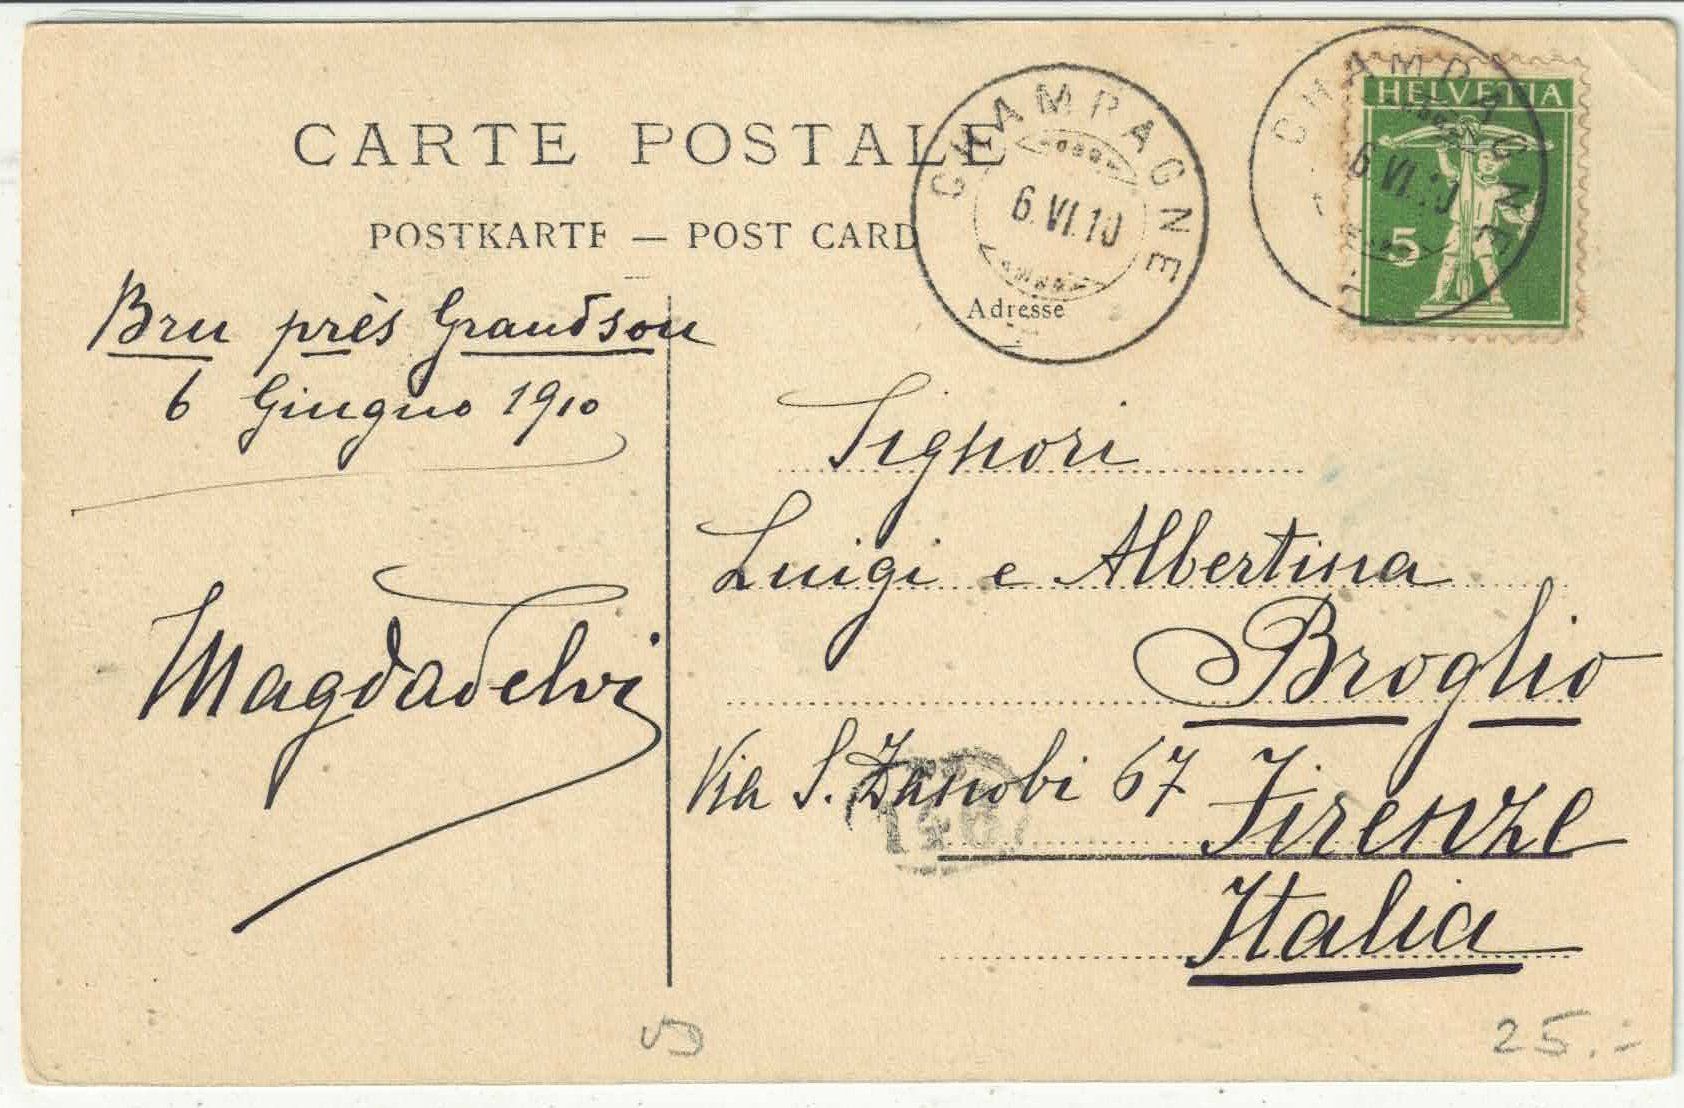 CARTE POSTALE
POSTKARTE — POST CARD
CHAMPAGNE
6.VI.10
CHAMPAGNE
6.VI.10
HELVETIA
5
Adresse
Bru près Grandson
6 Giugno 1910
Magdadelvi
Signori
Luigi e Albertina
Broglio
Via S. Zanobi 67 Firenze
Italia
VD
25.-